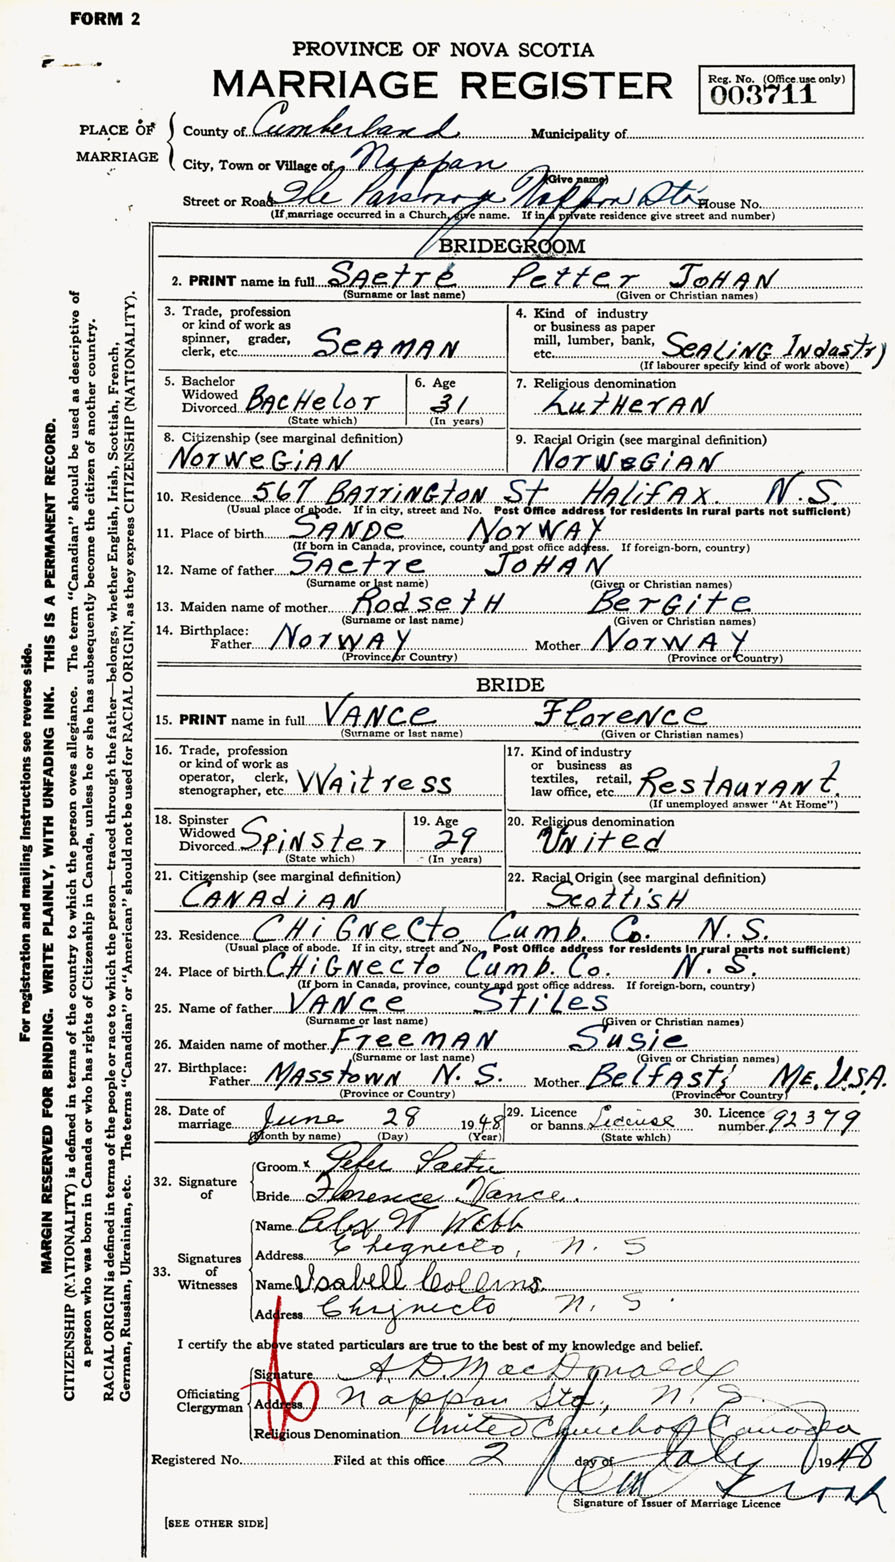 FORM 2
PROVINCE OF NOVA SCOTIA
MARRIAGE REGISTER
Reg. No. (Office use only)
003711
PLACE OF MARRIAGE
County of Cumberland Municipality of
City, Town or Village of Nappan
(Give name)
Street or Road The Parsonage Nappan Sta. House No.
(If marriage occurred in a Church, give name. If in a private residence give street and number)
BRIDEGROOM
2. PRINT name in full SAetre Petter JOHAN
(Surname or last name) (Given or Christian names)
3. Trade, profession or kind of work as spinner, grader, clerk, etc. SEAMAN
4. Kind of industry or business as paper mill, lumber, bank, etc. SEALING Industry
(If labourer specify kind of work above)
5. Bachelor Widowed Divorced BACHelor
(State which)
6. Age 31
(In years)
7. Religious denomination LUTHERAN
8. Citizenship (see marginal definition)
NorweGIAN
9. Racial Origin (see marginal definition)
NORWEGIAN
10. Residence 567 BARRINGTON St HALIFAX. N.S.
(Usual place of abode. If in city, street and No. Post Office address for residents in rural parts not sufficient)
11. Place of birth SANDe NorWAY
(If born in Canada, province, county and post office address. If foreign-born, country)
12. Name of father SAetre JOHAN
(Surname or last name) (Given or Christian names)
13. Maiden name of mother RodsetH BerGite
(Surname or last name) (Given or Christian names)
14. Birthplace: Father NorWAY Mother NorWAY
(Province or Country) (Province or Country)
BRIDE
15. PRINT name in full VANCe FloreNCe
(Surname or last name) (Given or Christian names)
16. Trade, profession or kind of work as operator, clerk, stenographer, etc. WAitress
17. Kind of industry or business as textiles, retail, law office, etc. RestAurANt.
(If unemployed answer "At Home")
18. Spinster Widowed Divorced SpiNster
(State which)
19. Age 29
(In years)
20. Religious denomination
UNited
21. Citizenship (see marginal definition)
CANAdiAN
22. Racial Origin (see marginal definition)
ScottisH
23. Residence CHiGNecto, Cumb. Co. N.S.
(Usual place of abode. If in city, street and No. Post Office address for residents in rural parts not sufficient)
24. Place of birth CHiGNecto Cumb. Co. N.S.
(If born in Canada, province, county and post office address. If foreign-born, country)
25. Name of father VANCe Stiles
(Surname or last name) (Given or Christian names)
26. Maiden name of mother FreeMAN Susie
(Surname or last name) (Given or Christian names)
27. Birthplace: Father MAsstowN N.S. Mother BelfAst; Me. U.S.A.
(Province or Country) (Province or Country)
28. Date of marriage June 28 1948
(Month by name) (Day) (Year)
29. Licence or banns License
(State which)
30. Licence number 92379
32. Signature of
Groom x Peter Saetre
Bride Florence Vance.
33. Signatures of Witnesses
Name Alex W Webb
Address Chignecto, N. S
Name Isabell Collins
Address Chignecto N. S.
I certify the above stated particulars are true to the best of my knowledge and belief.
Officiating Clergyman
Signature A. D. MacDonald
Address Nappan Sta., N. S.
Religious Denomination United Church of Canada
Registered No. Filed at this office 2 day of July 1948
Signature of Issuer of Marriage Licence
[SEE OTHER SIDE]
For registration and mailing instructions see reverse side.
MARGIN RESERVED FOR BINDING. WRITE PLAINLY, WITH UNFADING INK. THIS IS A PERMANENT RECORD.
CITIZENSHIP (NATIONALITY) is defined in terms of the country to which the person owes allegiance. The term "Canadian" should be used as descriptive of
a person who was born in Canada or who has rights of Citizenship in Canada, unless he or she has subsequently become the citizen of another country.
RACIAL ORIGIN is defined in terms of the people or race to which the person—traced through the father—belongs, whether English, Irish, Scottish, French,
German, Russian, Ukrainian, etc. The terms "Canadian" or "American" should not be used for RACIAL ORIGIN, as they express CITIZENSHIP (NATIONALITY).